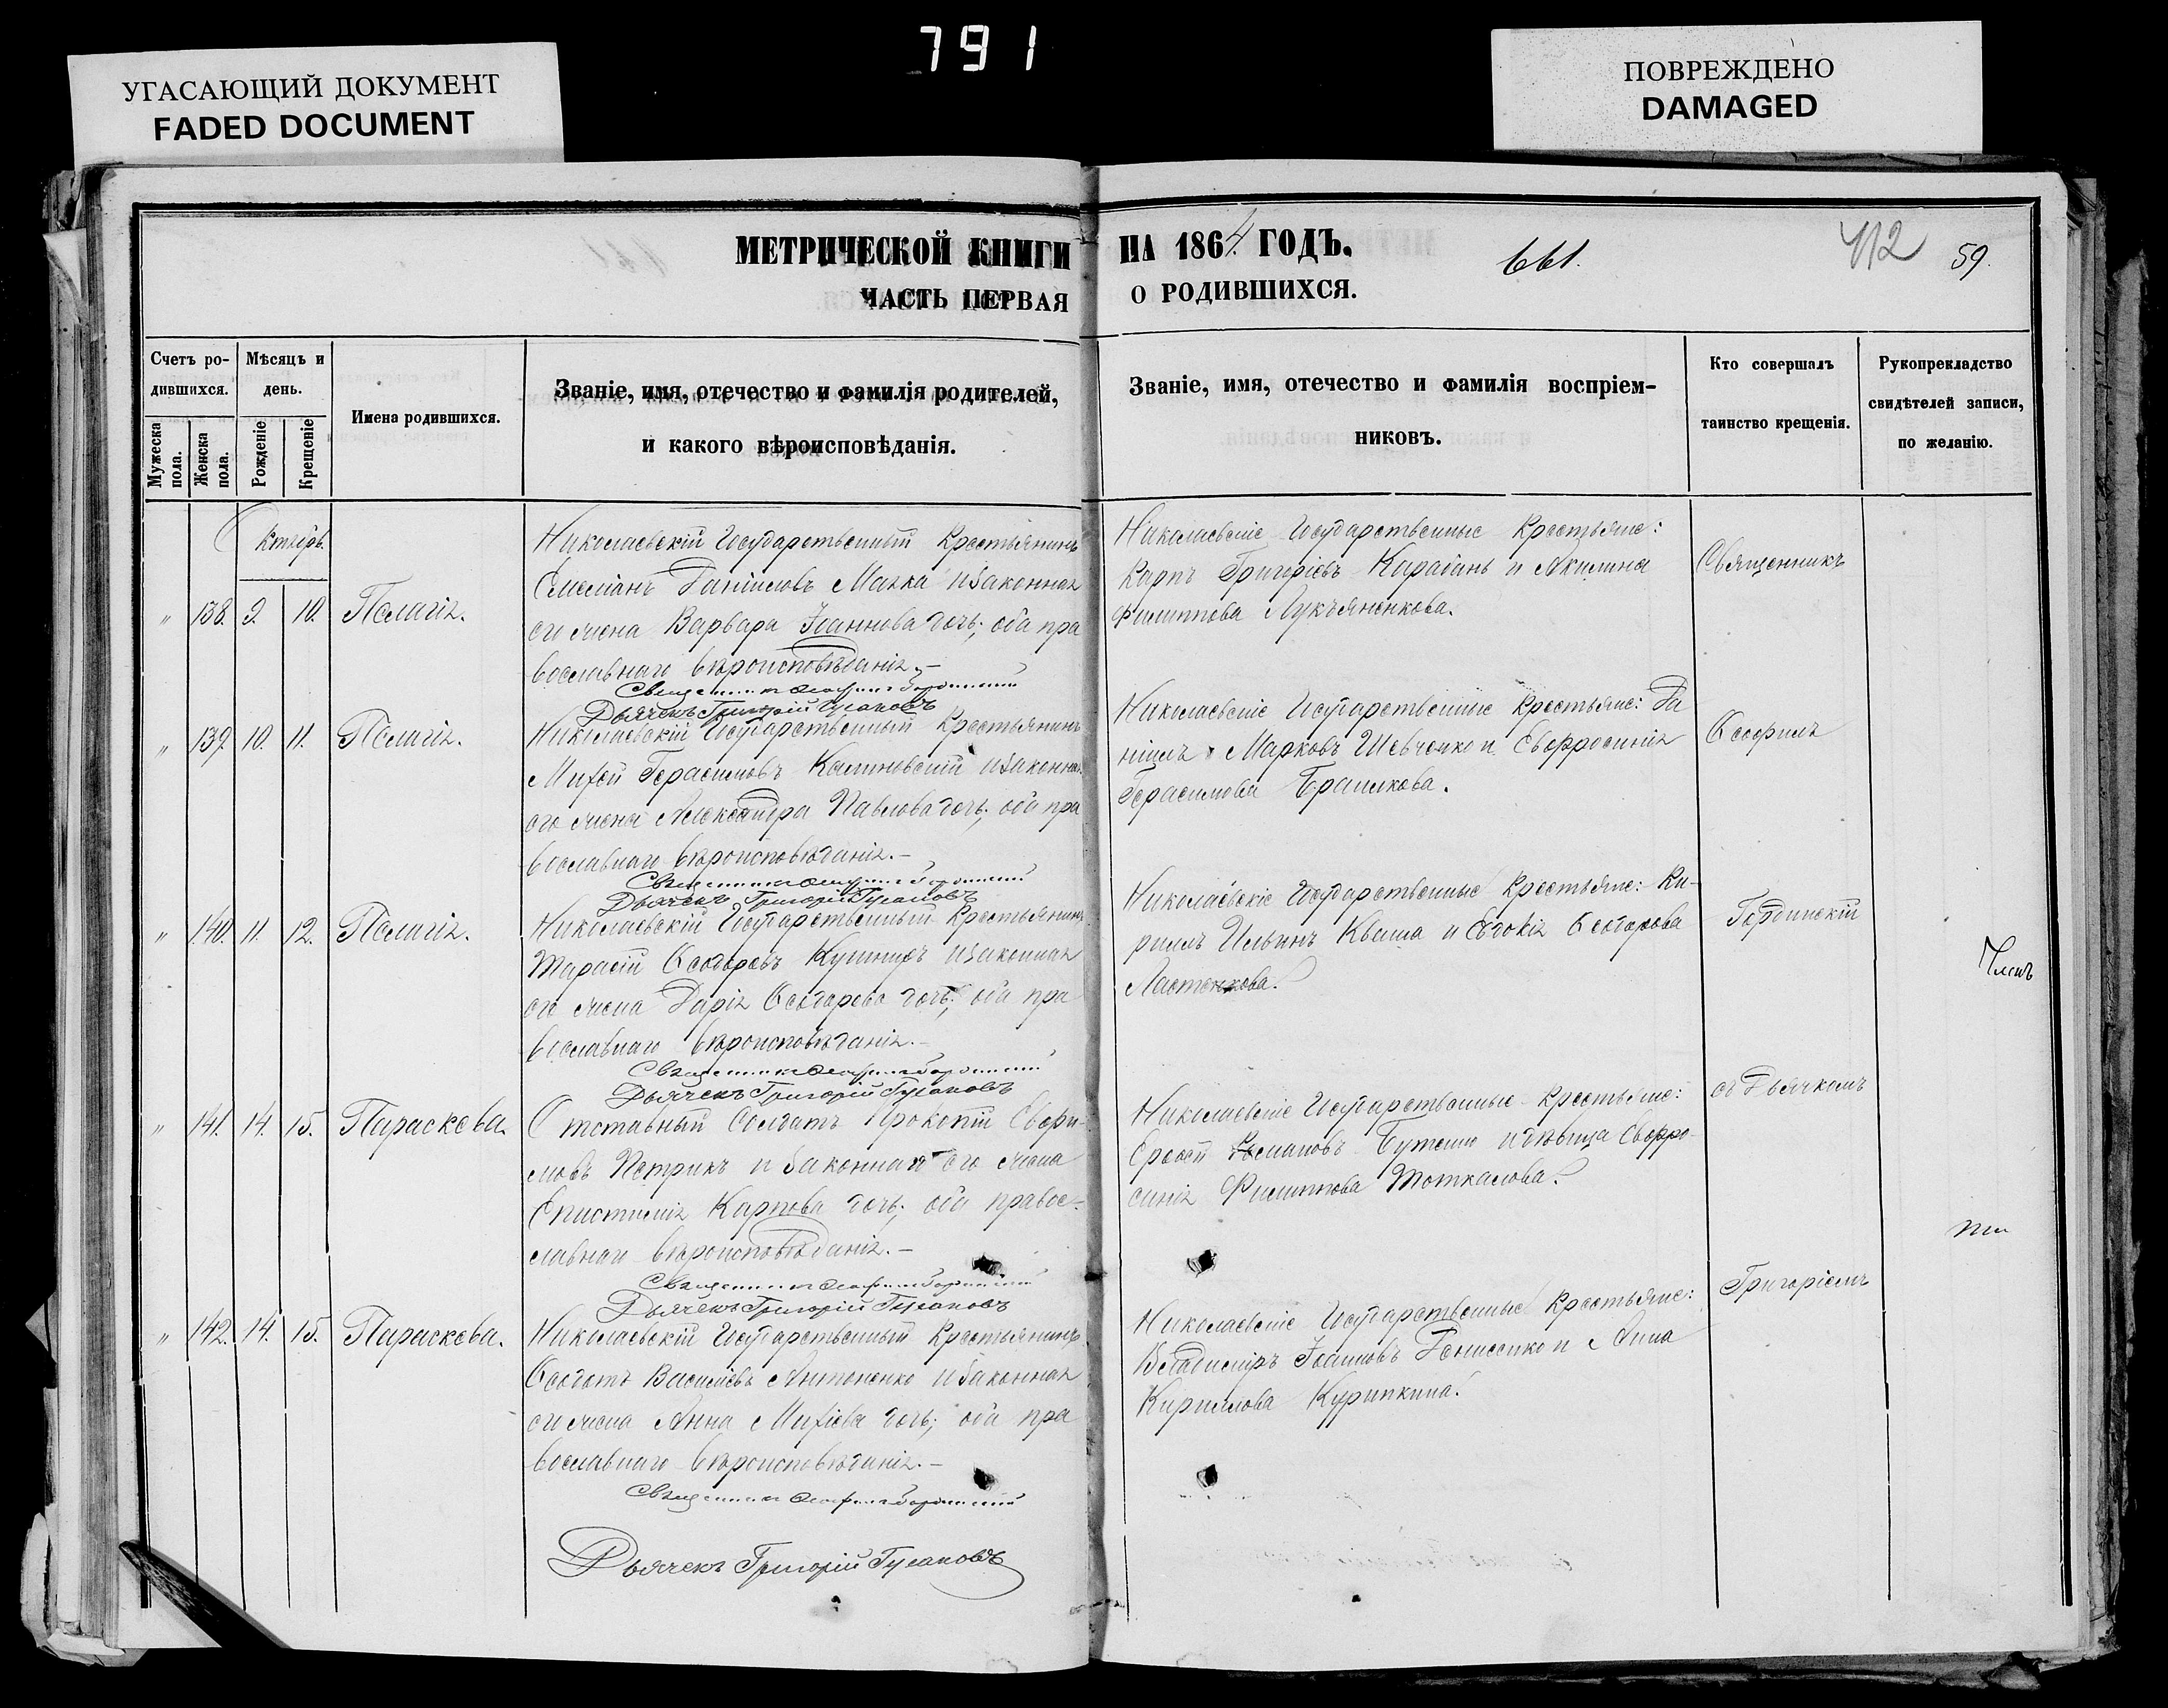 791
УГАСАЮЩИЙ ДОКУМЕНТ
FADED DOCUMENT
ПОВРЕЖДЕНО
DAMAGED
МЕТРИЧЕСКОЙ КНИГИ НА 1864 ГОДЪ.
661.
412
59.
ЧАСТЬ ПЕРВАЯ О РОДИВШИХСЯ.
Счетъ ро-
дившихся.
Мужеска пола.
Женска пола.
Мѣсяцъ и
день.
Рожденіе
Крещеніе
Имена родившихся.
Званіе, имя, отечество и фамилія родителей,
и какого вѣроисповѣданія.
Званіе, имя, отечество и фамилія воспріем-
никовъ.
Кто совершалъ
таинство крещенія.
Рукоприкладство
свидѣтелей записи,
по желанію.
Октябрь.
„ 138. 9. 10. Пелагія.
Николаевскій Государственный Крестьянинъ
Емеліанъ Даніиловъ и законная
его жена Варвара Іоаннова дочь; оба пра
вославнаго вѣроисповѣданія.–
Священникъ
Дьячекъ Григорій Гусаковъ
Николаевскіе Государственные Крестьяне:
Карпъ Григорьевъ Карабань и Акилина
Филиппова Лукъяненкова.
Священникъ
„ 139. 10. 11. Пелагія.
Николаевскій Государственный Крестьянинъ
Михей Герасимовъ Калиновскій и законная
его жена Александра Павлова дочь; оба пра
вославнаго вѣроисповѣданія.–
Священникъ
Дьячекъ Григорій Гусаковъ
Николаевскіе Государственные Крестьяне: Да
ніилъ Марковъ Шевченко и Евфросинія
Герасимова
Ѳеофилъ
„ 140. 11. 12. Пелагія.
Николаевскій Государственный Крестьянинъ
Тарасій Ѳеодоровъ Кушниръ и законная
его жена Дарія Ѳеодорова дочь; оба пра
вославнаго вѣроисповѣданія.–
Священникъ
Дьячекъ Григорій Гусаковъ
Николаевскіе Государственные Крестьяне: Ки-
риллъ Ильинъ Кваша и Евдокія Ѳеодорова
Ластенкова.
„ 141. 14. 15. Параскева.
Отставный Солдатъ Прокопій Евфи-
мовъ Петрикъ и законная его жена
Епистимія Карпова дочь; оба правос-
лавнаго вѣроисповѣданія.–
Священникъ
Дьячекъ Григорій Гусаковъ
Николаевскіе Государственные Крестьяне:
Бутенко и дѣвица Евфро-
синія Филиппова
съ Дьячкомъ
„ 142. 14. 15. Параскева.
Николаевскій Государственный Крестьянинъ
Ѳеодотъ Васильевъ Антоненко и законная
его жена Анна Михеева дочь; оба пра
вославнаго вѣроисповѣданія.–
Священникъ
Дьячекъ Григорій Гусаковъ
Николаевскіе Государственные Крестьяне:
Владиміръ Іоанновъ Денисенко и Анна
Кириллова Курипкина.
Григоріемъ
Членъ